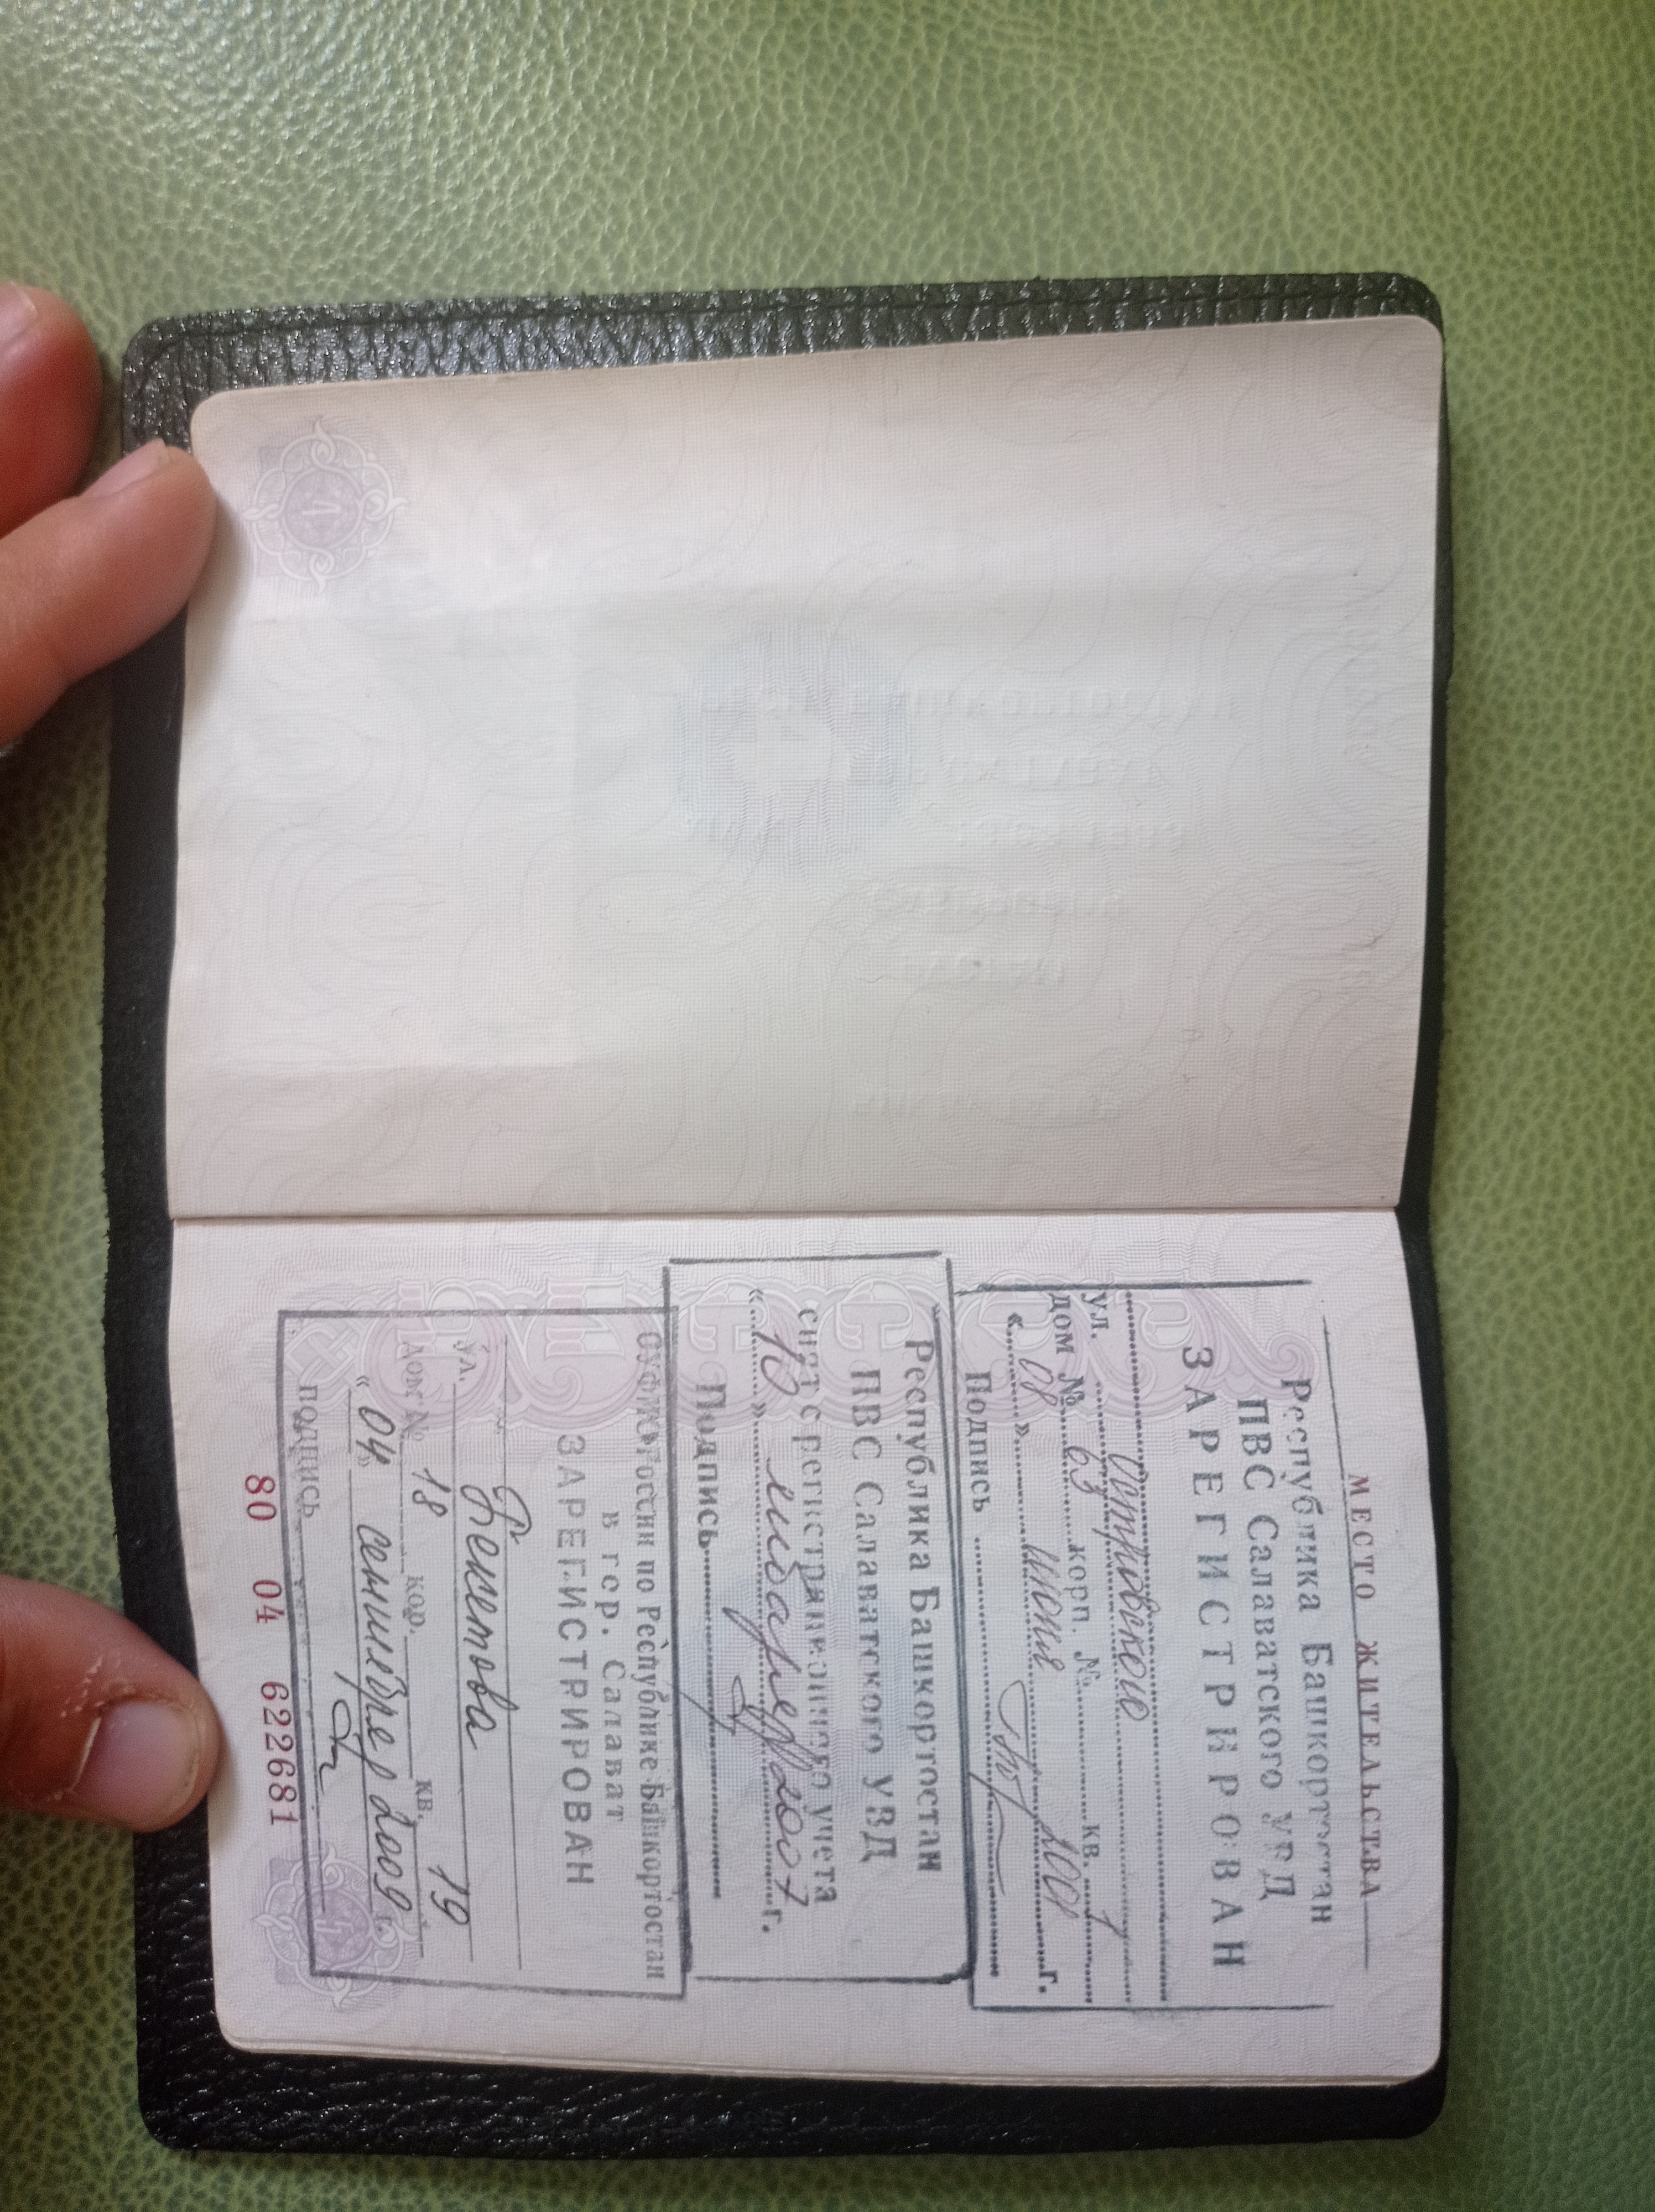 МЕСТО ЖИТЕЛЬСТВА
Республика Башкортостан
ПВС Салаватского УВД
ЗАРЕГИСТРИРОВАН
Островского
ул.
дом № 63 корп. № кв. 1
« 08 » июня 2001 г.
Подпись
Республика Башкортостан
ПВС Салаватского УВД
снят с регистрационного учета
« 10 » января 2007 г.
Подпись
ОУФМС России по Республике Башкортостан
в гор. Салават
ЗАРЕГИСТРИРОВАН
ул. Бекетова
дом № 18 кор. кв. 19
« 04 » сентября 2009 г.
подпись
80 04 622681